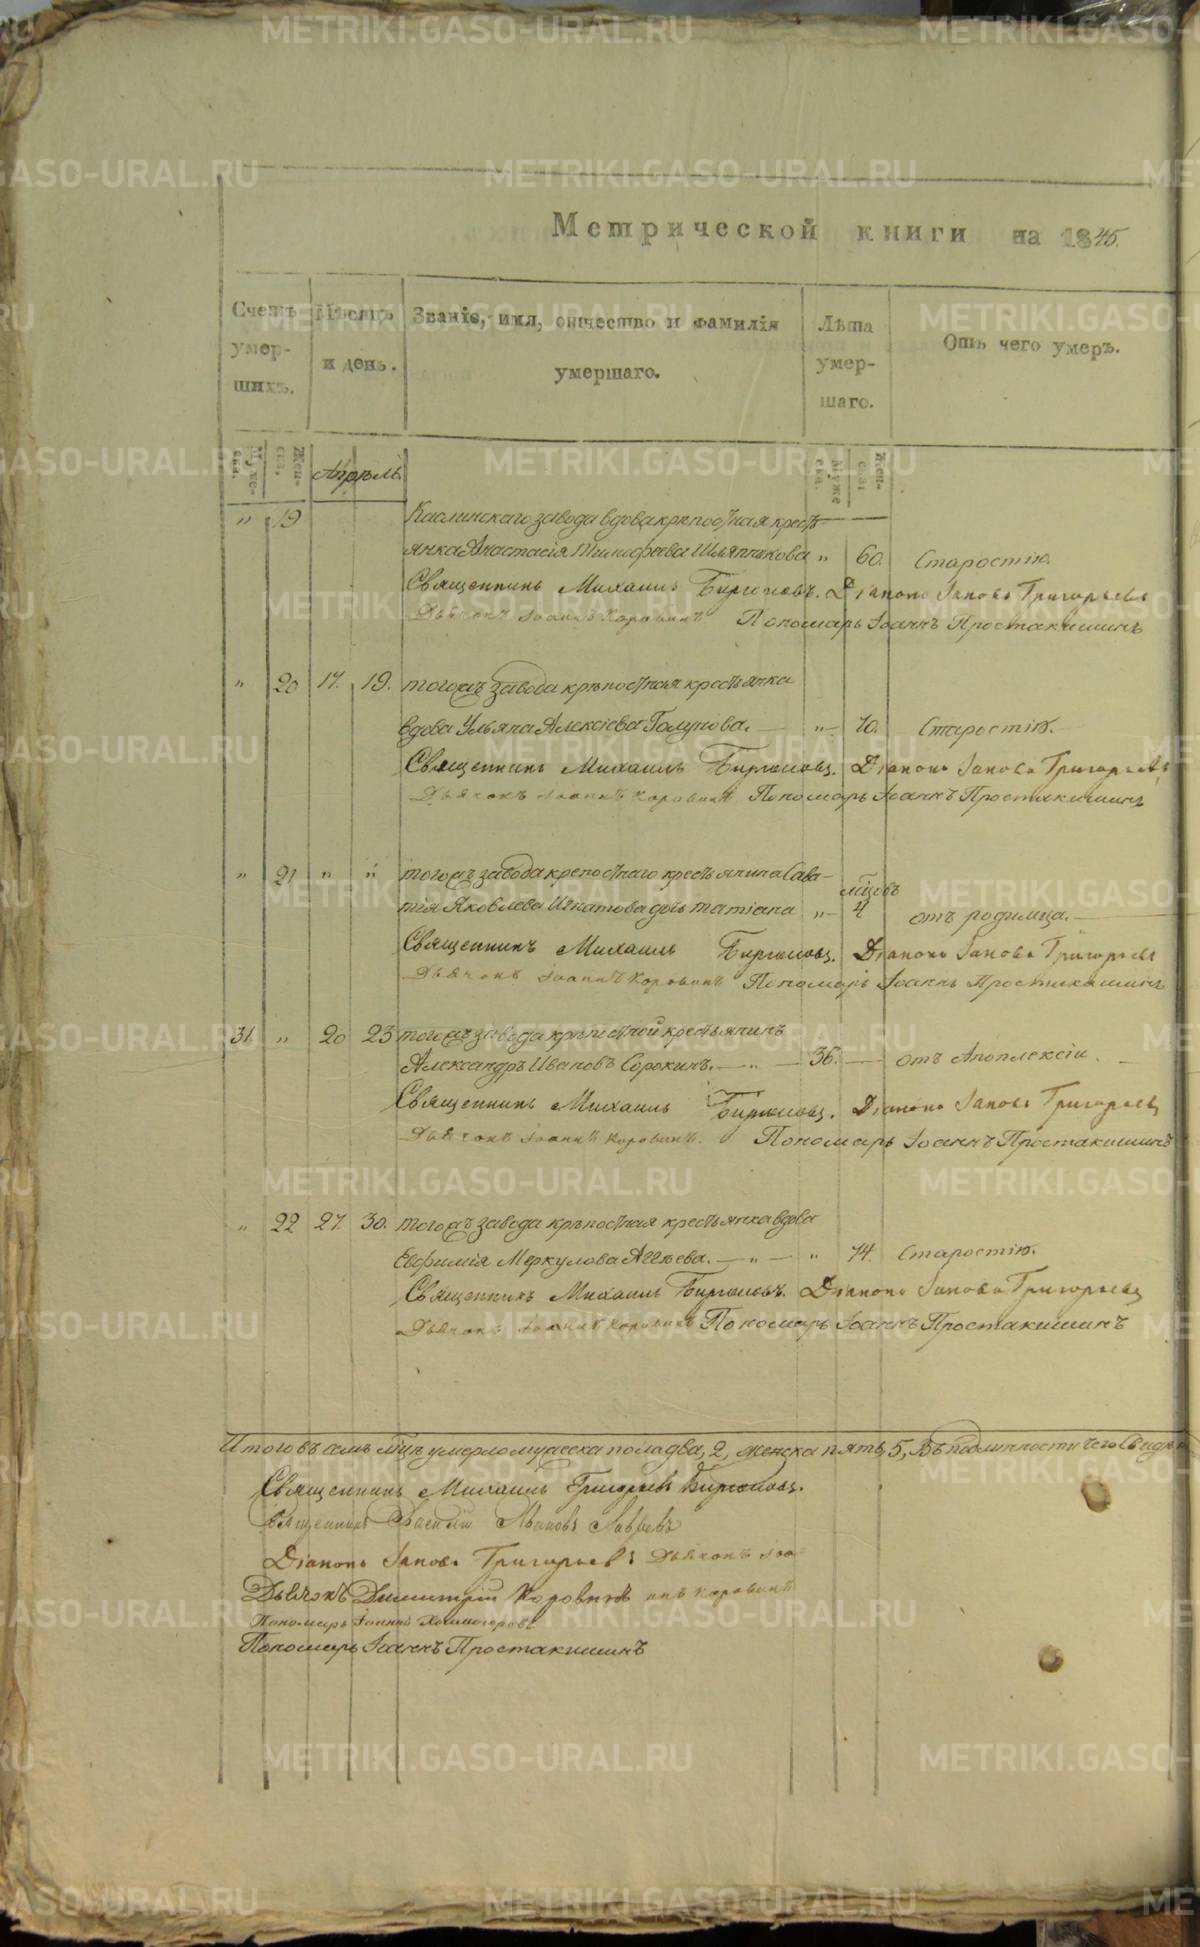 Метрической книги на 1845.
Счетъ умер-шихъ.
Мѣсяцъ и день.
Званіе, имя, отчество и фамилія умершаго.
Лѣта умер-шаго.
Отъ чего умеръ.
Муже-ска.
Жен-ска.
Апрѣль
Муже ска.
Жен-ска
" 19 Каслинскаго завода вдова крѣпостная кресть-
янка Анастасія Тимофѣева Шляпникова " 60. Старостію.
Священникъ Михаилъ Бирюковъ. Діаконъ Іаковъ Григорьевъ
Дьячокъ Іоаннъ Коровинъ Пономарь Іоаннъ Простакишинъ
" 20 17. 19. тогожъ завода крѣпостная крестьянка
вдова Ульяна Алексіева Голунова. " 70. Старостію.
Священникъ Михаилъ Бирюковъ. Діаконъ Іаковъ Григорьевъ
Дьячокъ Іоаннъ Коровинъ Пономарь Іоаннъ Простакишинъ
" 21 " " тогожъ завода крепостнаго крестьянина Сава-
мцовъ
тія Яковлева Игнатова дочь Татіана " 4 отъ родимца.
Священникъ Михаилъ Бирюковъ. Діаконъ Іаковъ Григорьевъ
Дьячокъ Іоаннъ Коровинъ Пономарь Іоаннъ Простакишинъ
31. " 20 23 тогожъ завода крѣпостной крестьянинъ
Александръ Ивановъ Сорокинъ. " 36. отъ Апоплексіи.
Священникъ Михаилъ Бирюковъ. Діаконъ Іаковъ Григорьевъ
Дьячокъ Іоаннъ Коровинъ. Пономарь Іоаннъ Простакишинъ
" 22 27. 30. тогожъ завода крѣпостная крестьянка вдова
Евфимія Меркулова Агѣева. " " 74. Старостію.
Священникъ Михаилъ Бирюковъ. Діаконъ Іаковъ Григорьевъ
Дьячокъ Іоаннъ Коровинъ Пономарь Іоаннъ Простакишинъ
Итого въ семъ мцѣ умерло мужеска пола два, 2, женска пять, 5, Въ подлинности чего Свидѣт
Священникъ Михаилъ Григорьевъ Бирюковъ.
Священникъ Василій Ивановъ
Діаконъ Іаковъ Григорьевъ Дьячокъ Іоа-
Дьячокъ Димитрій Коровинъ ннъ Коровинъ
Пономарь Іоаннъ Холмогоровъ
Пономарь Іоаннъ Простакишинъ
METRIKI.GASO-URAL.RU